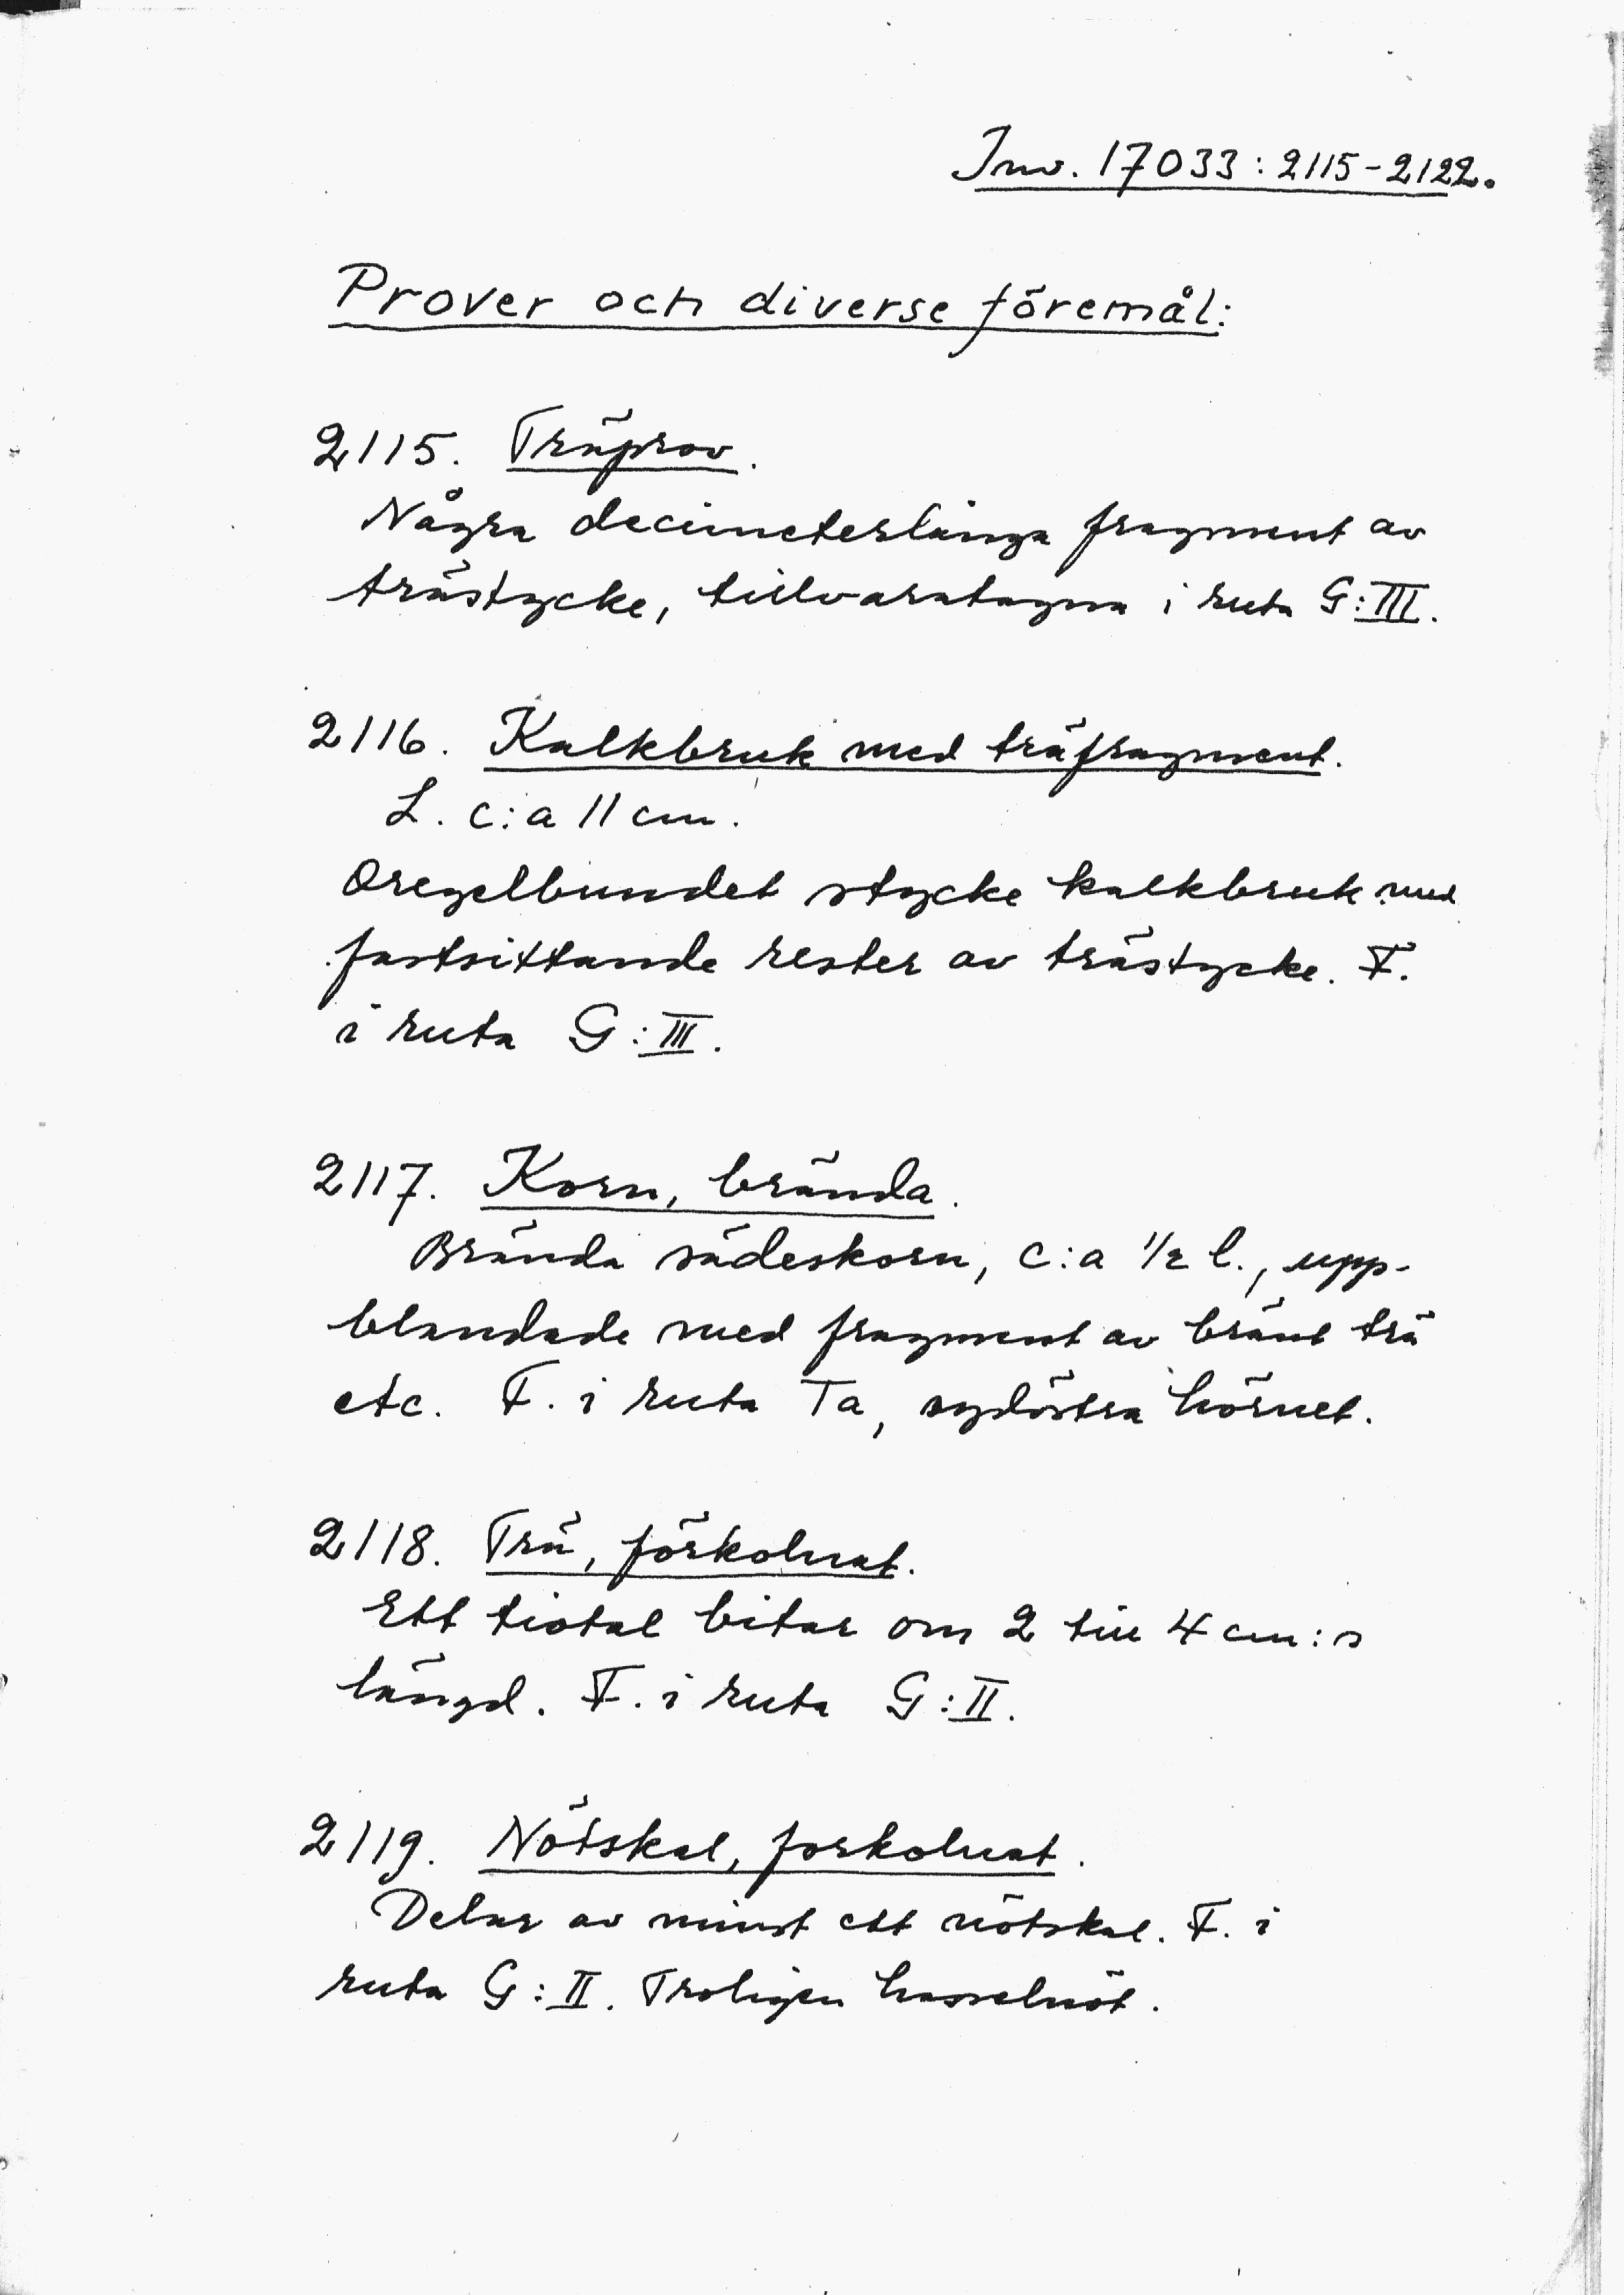 Inv. 17033:2115-2122.
Prover och diverse föremål:
2115. Träprov.
Några decimeterlånga fragment av
trästycke, tillvaratagna i ruta G:III.
2116. Kalkbruk med träfragment.
L. c:a 11 cm.
Oregelbundet stycke kalkbruk med
fastsittande rester av trästycke. F.
i ruta G:III.
2117. Korn, brända.
Brända sädeskorn, c:a 1/2 l., upp-
blandade med fragment av bränt trä
etc. F. i ruta Ta, sydöstra hörnet.
2118. Trä, förkolnat.
Ett tiotal bitar om 2 till 4 cm:s
längd. F. i ruta G:II.
2119. Nötskal, forkolnat.
Delar av minst ett nötskal. F. i
ruta G:II. Troligen hasselnöt.